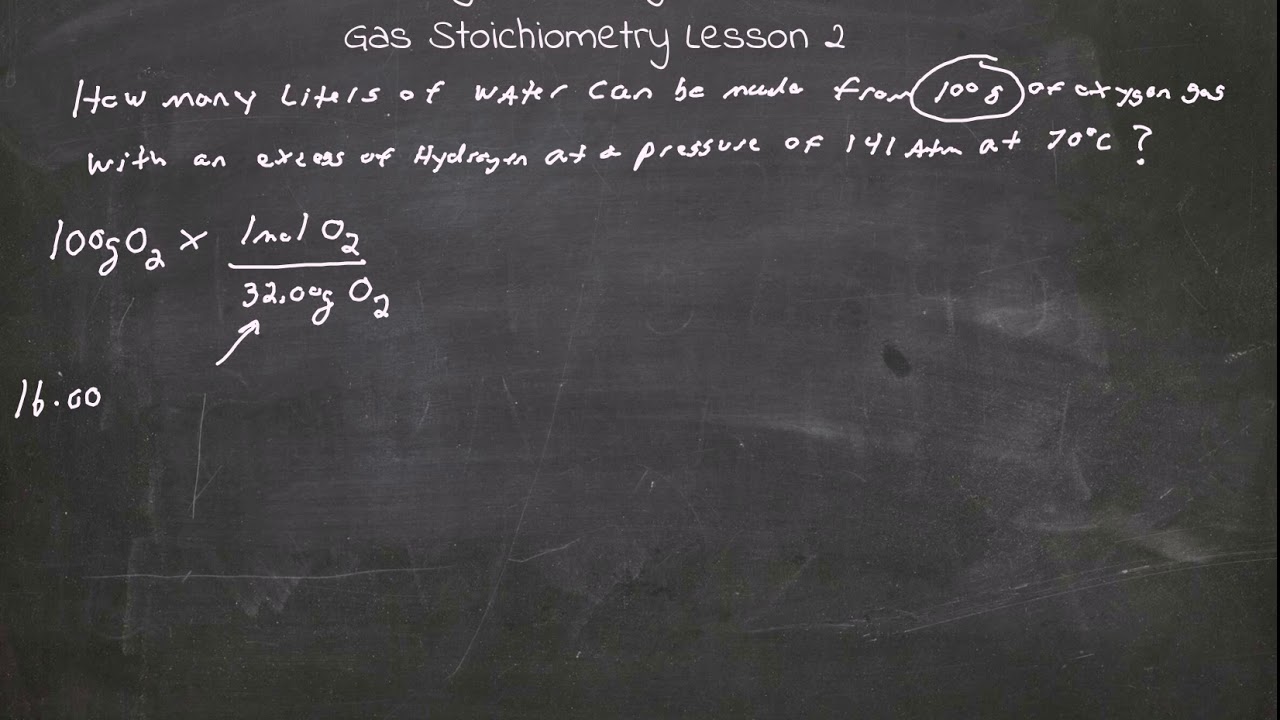 Gas Stoichiometry Lesson 2
How many Liters of water can be made from 100g of oxygen gas
with an excess of Hydrogen at a pressure of 141 Atm at 70°C?
100g O₂ × 1mol O₂
32.00g O₂
16.00